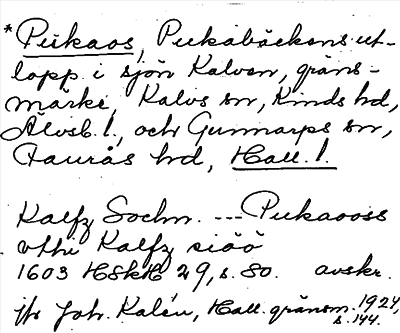 * Pukaos, Pukabäckens ut-
lopp i sjön Kalven, gräns-
märke, Kalvs sn, Kinds hd,
Älvsb. l., och Gunnarps sn,
Faurås hd, Hall. l.
Kalfz Sochn. --- Pukaooss
vthi Kalfz siöö
1603 HSkH 29, s. 80. avskr.
jfr Joh. Kalén, Hall. gränsm. 1924,
s. 144.